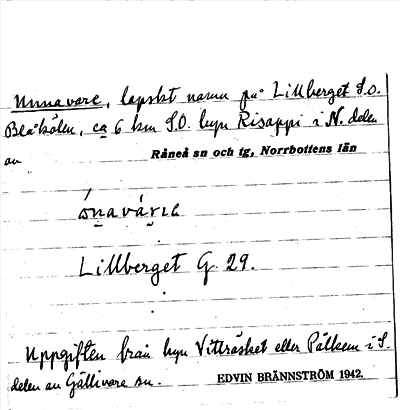 Unnavare, lapskt namn på Lillberget S.O.
Blåkölen, ca 6 km S.O. byn Risappi i N. delen
av Råneå sn och tg, Norrbottens län
ònavárιε
Lillberget G. 29.
Uppgiften från byn Vitträsket eller Pålkem i S.
delen av Gällivare sn. EDVIN BRÄNNSTRÖM 1942.